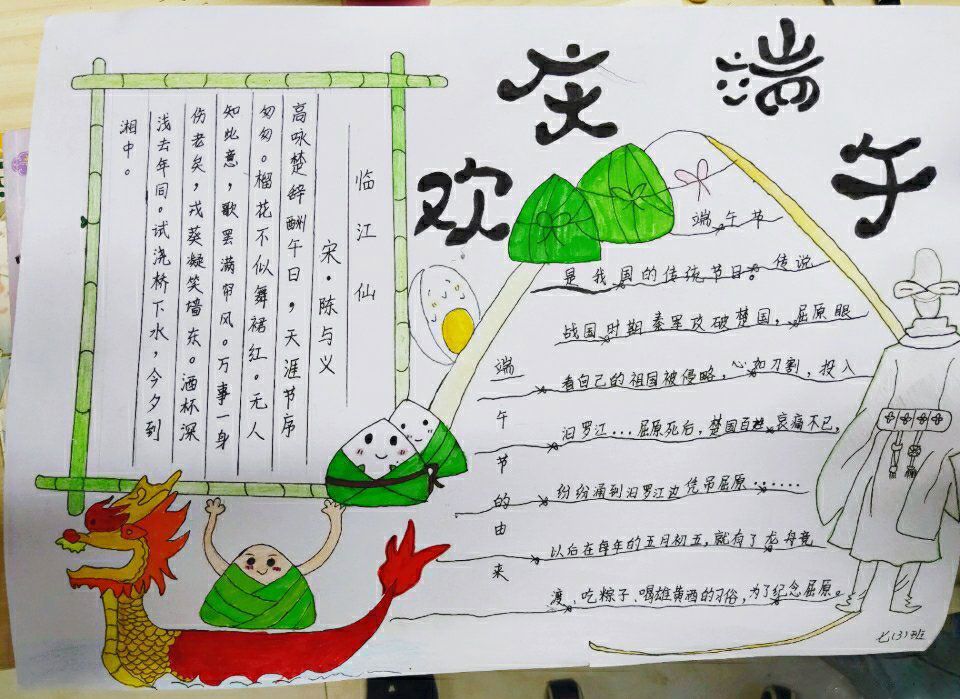 欢庆端午
临江仙
宋·陈与义
高咏楚辞酬午日，天涯节序
匆匆。榴花不似舞裙红。无人
知此意，歌罢满帘风。万事一身
伤老矣，戎葵凝笑墙东。酒杯深
浅去年同。试浇桥下水，今夕到
湘中。
端午节的由来
端午节
是我国的传统节日。传说
战国时期秦军攻破楚国，屈原眼
看自己的祖国被侵略，心如刀割，投入
汨罗江...屈原死后，楚国百姓哀痛不已，
纷纷涌到汨罗江边凭吊屈原......
以后在每年的五月初五，就有了龙舟竞
渡、吃粽子、喝雄黄酒的习俗，为了纪念屈原。
七(3)班